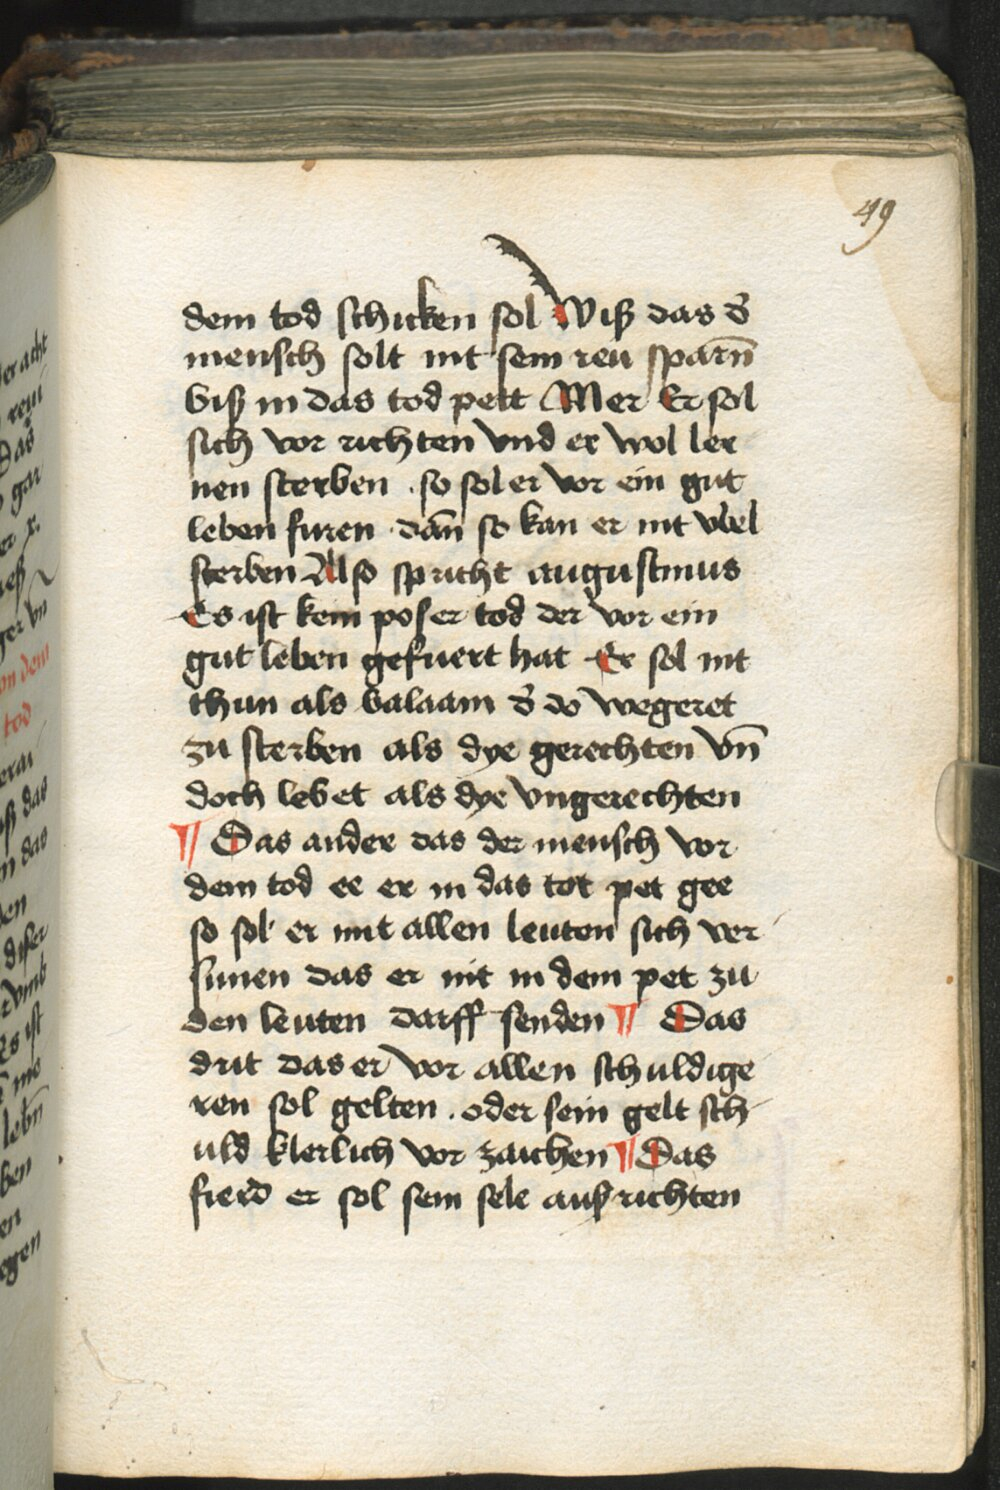 49
dem tod schicken sol Wiß das d̕
mensch solt nit sein reu sparn̄
biß in das tod pett Mer Er sol
sich vor richten vnd er wol ler
nen sterben . so sol er vor ein gut
leben furen . dan̄ so kan er nit vbel
sterben Also spricht augustinus
Es ist kein poser tod der vor ein
gut leben gefuert hat Er sol nit
thun als balaam d̕ do wegeret
zu sterben als dye gerechten vn̄
doch lebet als dye vngerechten
¶ Das ander das der mensch vor
dem tod ee er in das tot pet gee
so sol er mit allen leuten sich ver
sunen das er nit in dem pet zu
den leuten darff senden ¶ Das
drit das er vor allen schuldige
ren sol gelten . oder sein gelt sch
uld klerlich vor zaichen ¶ Das
fierd er sol sein sele auß richten